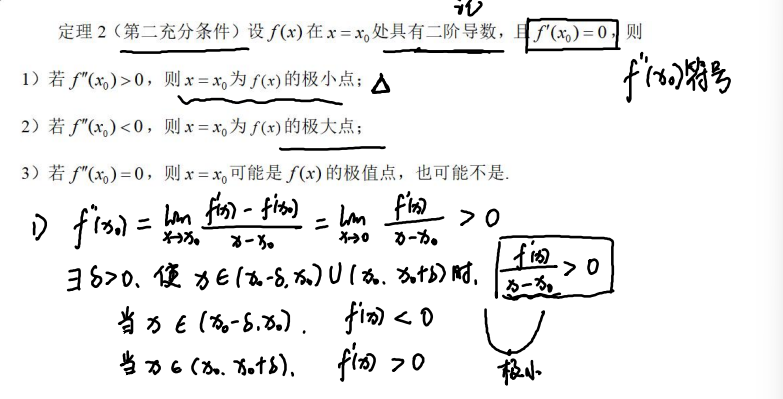 记
定理 2（第二充分条件）设 f(x) 在 x = x₀ 处具有二阶导数，且 f′(x₀) = 0，则
f″(x₀)符号
1）若 f″(x₀) > 0，则 x = x₀ 为 f(x) 的极小点；△
2）若 f″(x₀) < 0，则 x = x₀ 为 f(x) 的极大点；
3）若 f″(x₀) = 0，则 x = x₀ 可能是 f(x) 的极值点，也可能不是.
1) f″(x₀) = lim x→x₀ (f′(x) - f′(x₀))/(x - x₀) = lim x→0 f′(x)/(x - x₀) > 0
∃ δ>0. 使 x∈(x₀-δ, x₀)∪(x₀, x₀+δ)时, f′(x)/(x-x₀) > 0
当 x ∈ (x₀-δ, x₀). f′(x) < 0
当 x ∈ (x₀, x₀+δ). f′(x) > 0 极小